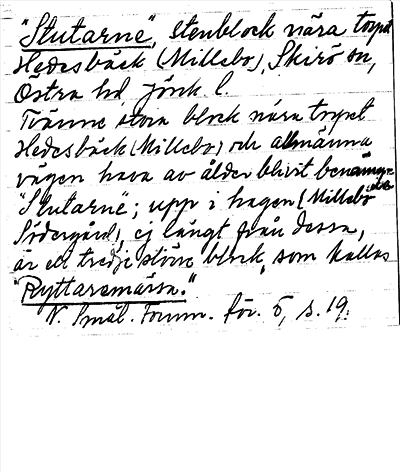 "Stutarne", stenblock nära torpet
Hedesbäck (Millebo), Skirö sn,
Östra hd, Jönk. l.
Tvänne stora block nära torpet
Hedesbäck (Millebo) och allmänna
vägen hava av ålder blivit benämn-
"Stutarne"; upp i hagen (Millebo
Södergård), ej långt från dessa,
är ett tredje större block, som kallas
"Ryttaremärsa."
N. Smål. Fornm. för. 5, s. 19.